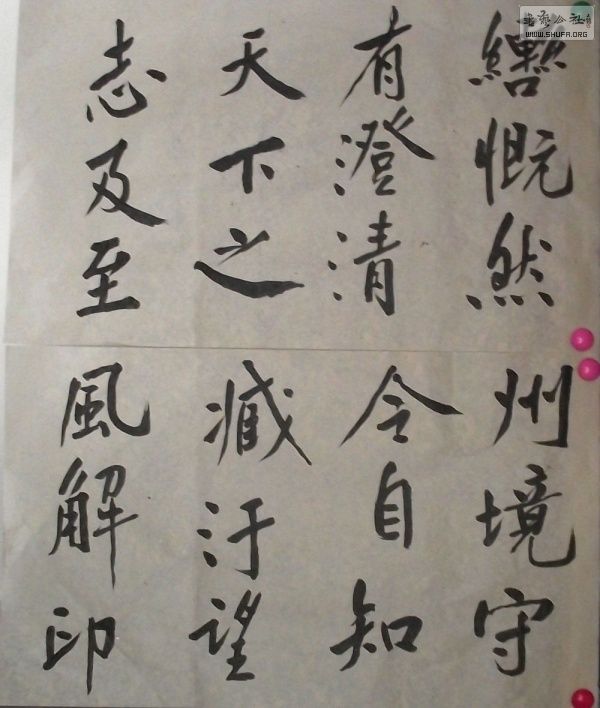 轡慨然
有澄清
天下之
志及至
州境守
令自知
臧汙望
風解印
書藝公社
WWW.SHUFA.ORG